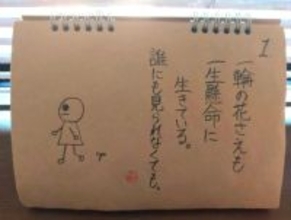 1
一輪の花さえも
一生懸命に
生きている。
誰にも見られなくても、